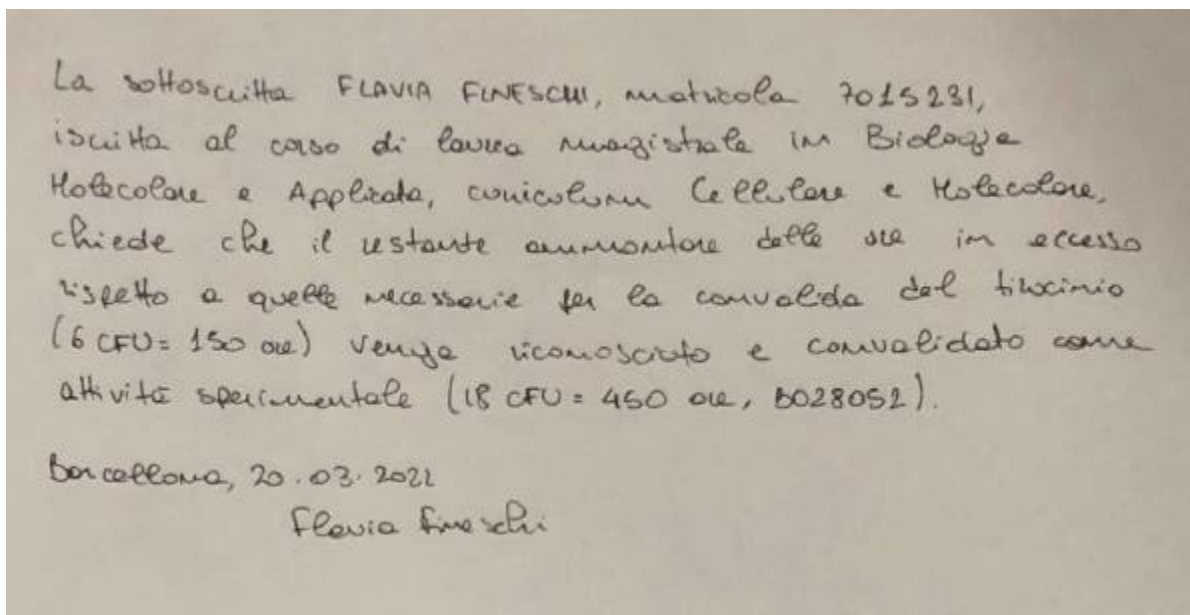 La sottoscritta FLAVIA FINESCHI, matricola 7015231,
iscritta al corso di laurea magistrale in Biologia
Molecolare e Applicata, curriculum Cellulare e Molecolare,
chiede che il restante ammontare delle ore in eccesso
rispetto a quelle necessarie per la convalida del tirocinio
(6 CFU = 150 ore) venga riconosciuto e convalidato come
attività sperimentale (18 CFU = 450 ore, B028052).
Barcellona, 20.03.2022
Flavia Fineschi